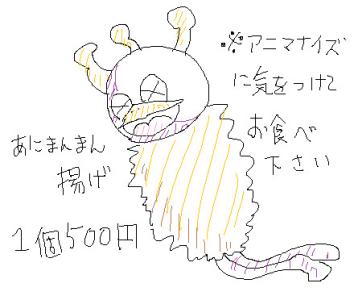 ※アニマナイズ
に気をつけて
お食べ
下さい
あにまんまん
揚げ
1個500円